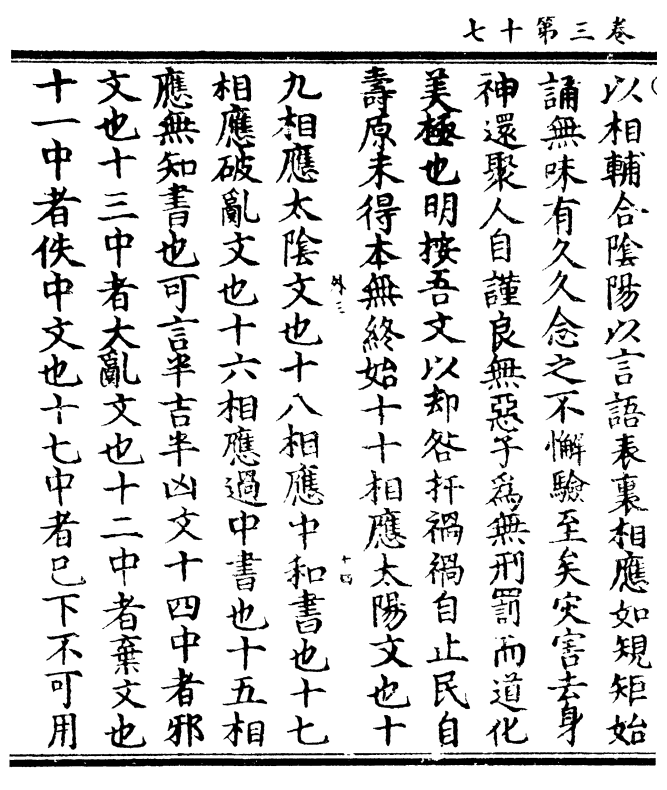 卷三第十七
以相輔合陰陽以言語表裏相應如規矩始
誦無味有久久念之不懈驗至矣灾害去身
神還聚人自謹良無惡子爲無刑罰而道化
美極也明按吾文以却咎扞禍禍自止民自
壽原未得本無終始十十相應太陽文也十
外三
十四
九相應太陰文也十八相應中和書也十七
相應破亂文也十六相應過中書也十五相
應無知書也可言半吉半凶文十四中者邪
文也十三中者大亂文也十二中者棄文也
十一中者佚中文也十七中者已下不可用